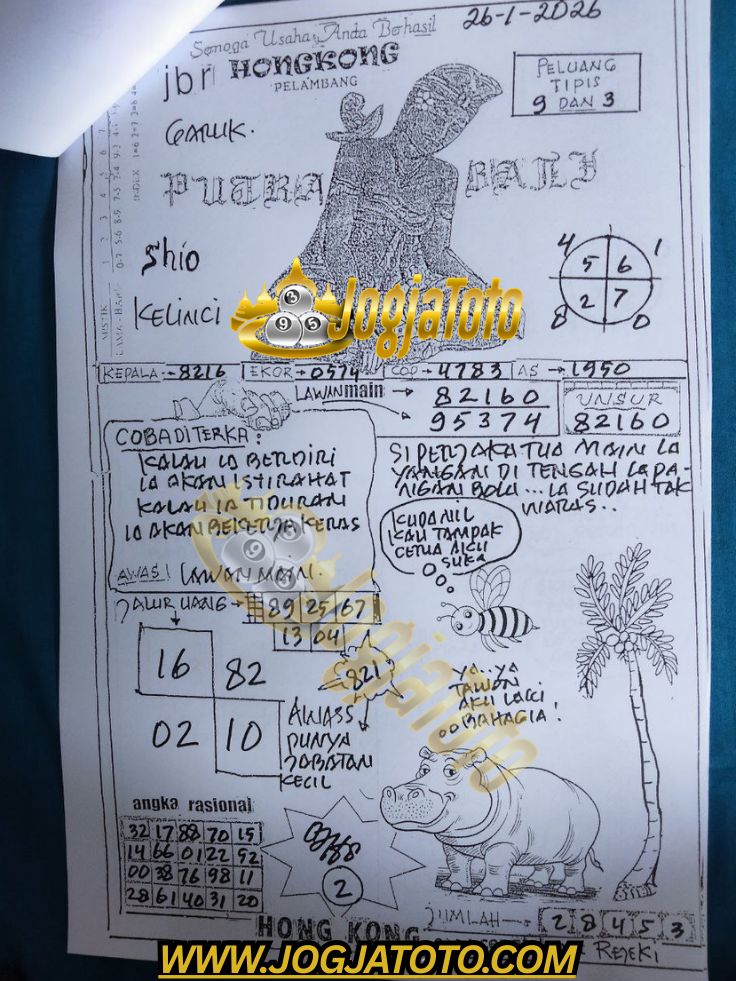 Semoga Usaha, Anda Berhasil
26-1-2026
jbr HONGKONG
PELAMBANG
PELUANG
TIPIS
9 DAN 3
GARUK.
PUTRA BALI
Shio
KELINCI
4 1
5 6
2 7
8 0
JogjaToto
KEPALA → 8216 EKOR → 0574 COP → 4783 AS → 1950
LAWAN main → 82160
→ 95374
UNSUR
82160
COBA DITERKA:
KALAU IA BERDIRI
IA AKAN ISTIRAHAT
KALAU IA TIDURAN
IA AKAN BEKERJA KERAS
AWAS! LAWAN MAIN.
SI PERJAKA TUA MAIN LA
YANGAN DI TENGAH LAPA-
NGAN BOLA... IA SUDAH TAK
WARAS..
KUDANIL
KAU TAMPAK
CERIA AKU
SUKA
JALUR UANG → 89 25 67
13 04
16 82
02 10
821
AWASS
PUNYA
JABATAN
KECIL
YA..YA
TAWON
AKU LAGI
BAHAGIA!
JogjaToto
angka rasional
32 17 88 70 15
14 66 01 22 92
00 38 76 98 11
28 61 40 31 20
2
JUMLAH → 2 8 4 5 3
HONG KONG
REJEKI
WWW.JOGJATOTO.COM